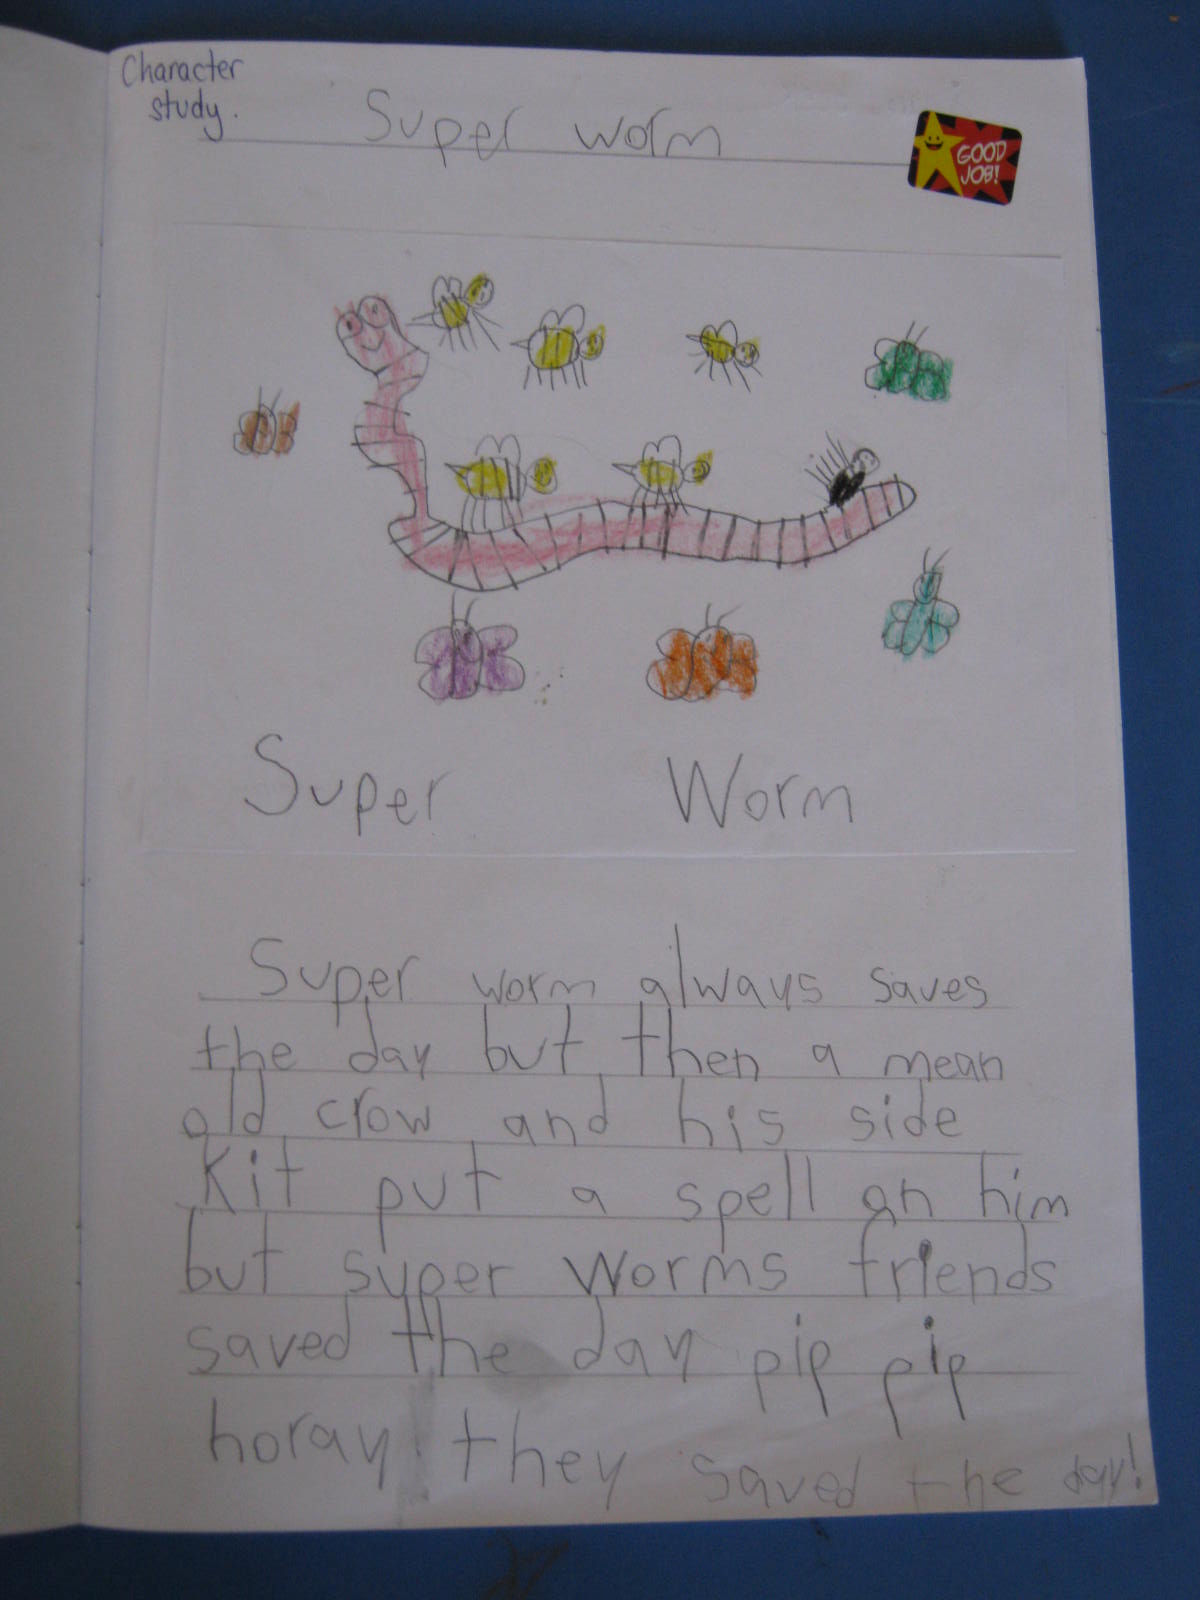 Character
study.
Super worm
GOOD
JOB!
Super Worm
Super worm always saves
the day but then a mean
old crow and his side
kit put a spell on him
but super worms friends
saved the day pip pip
horay they saved the day!